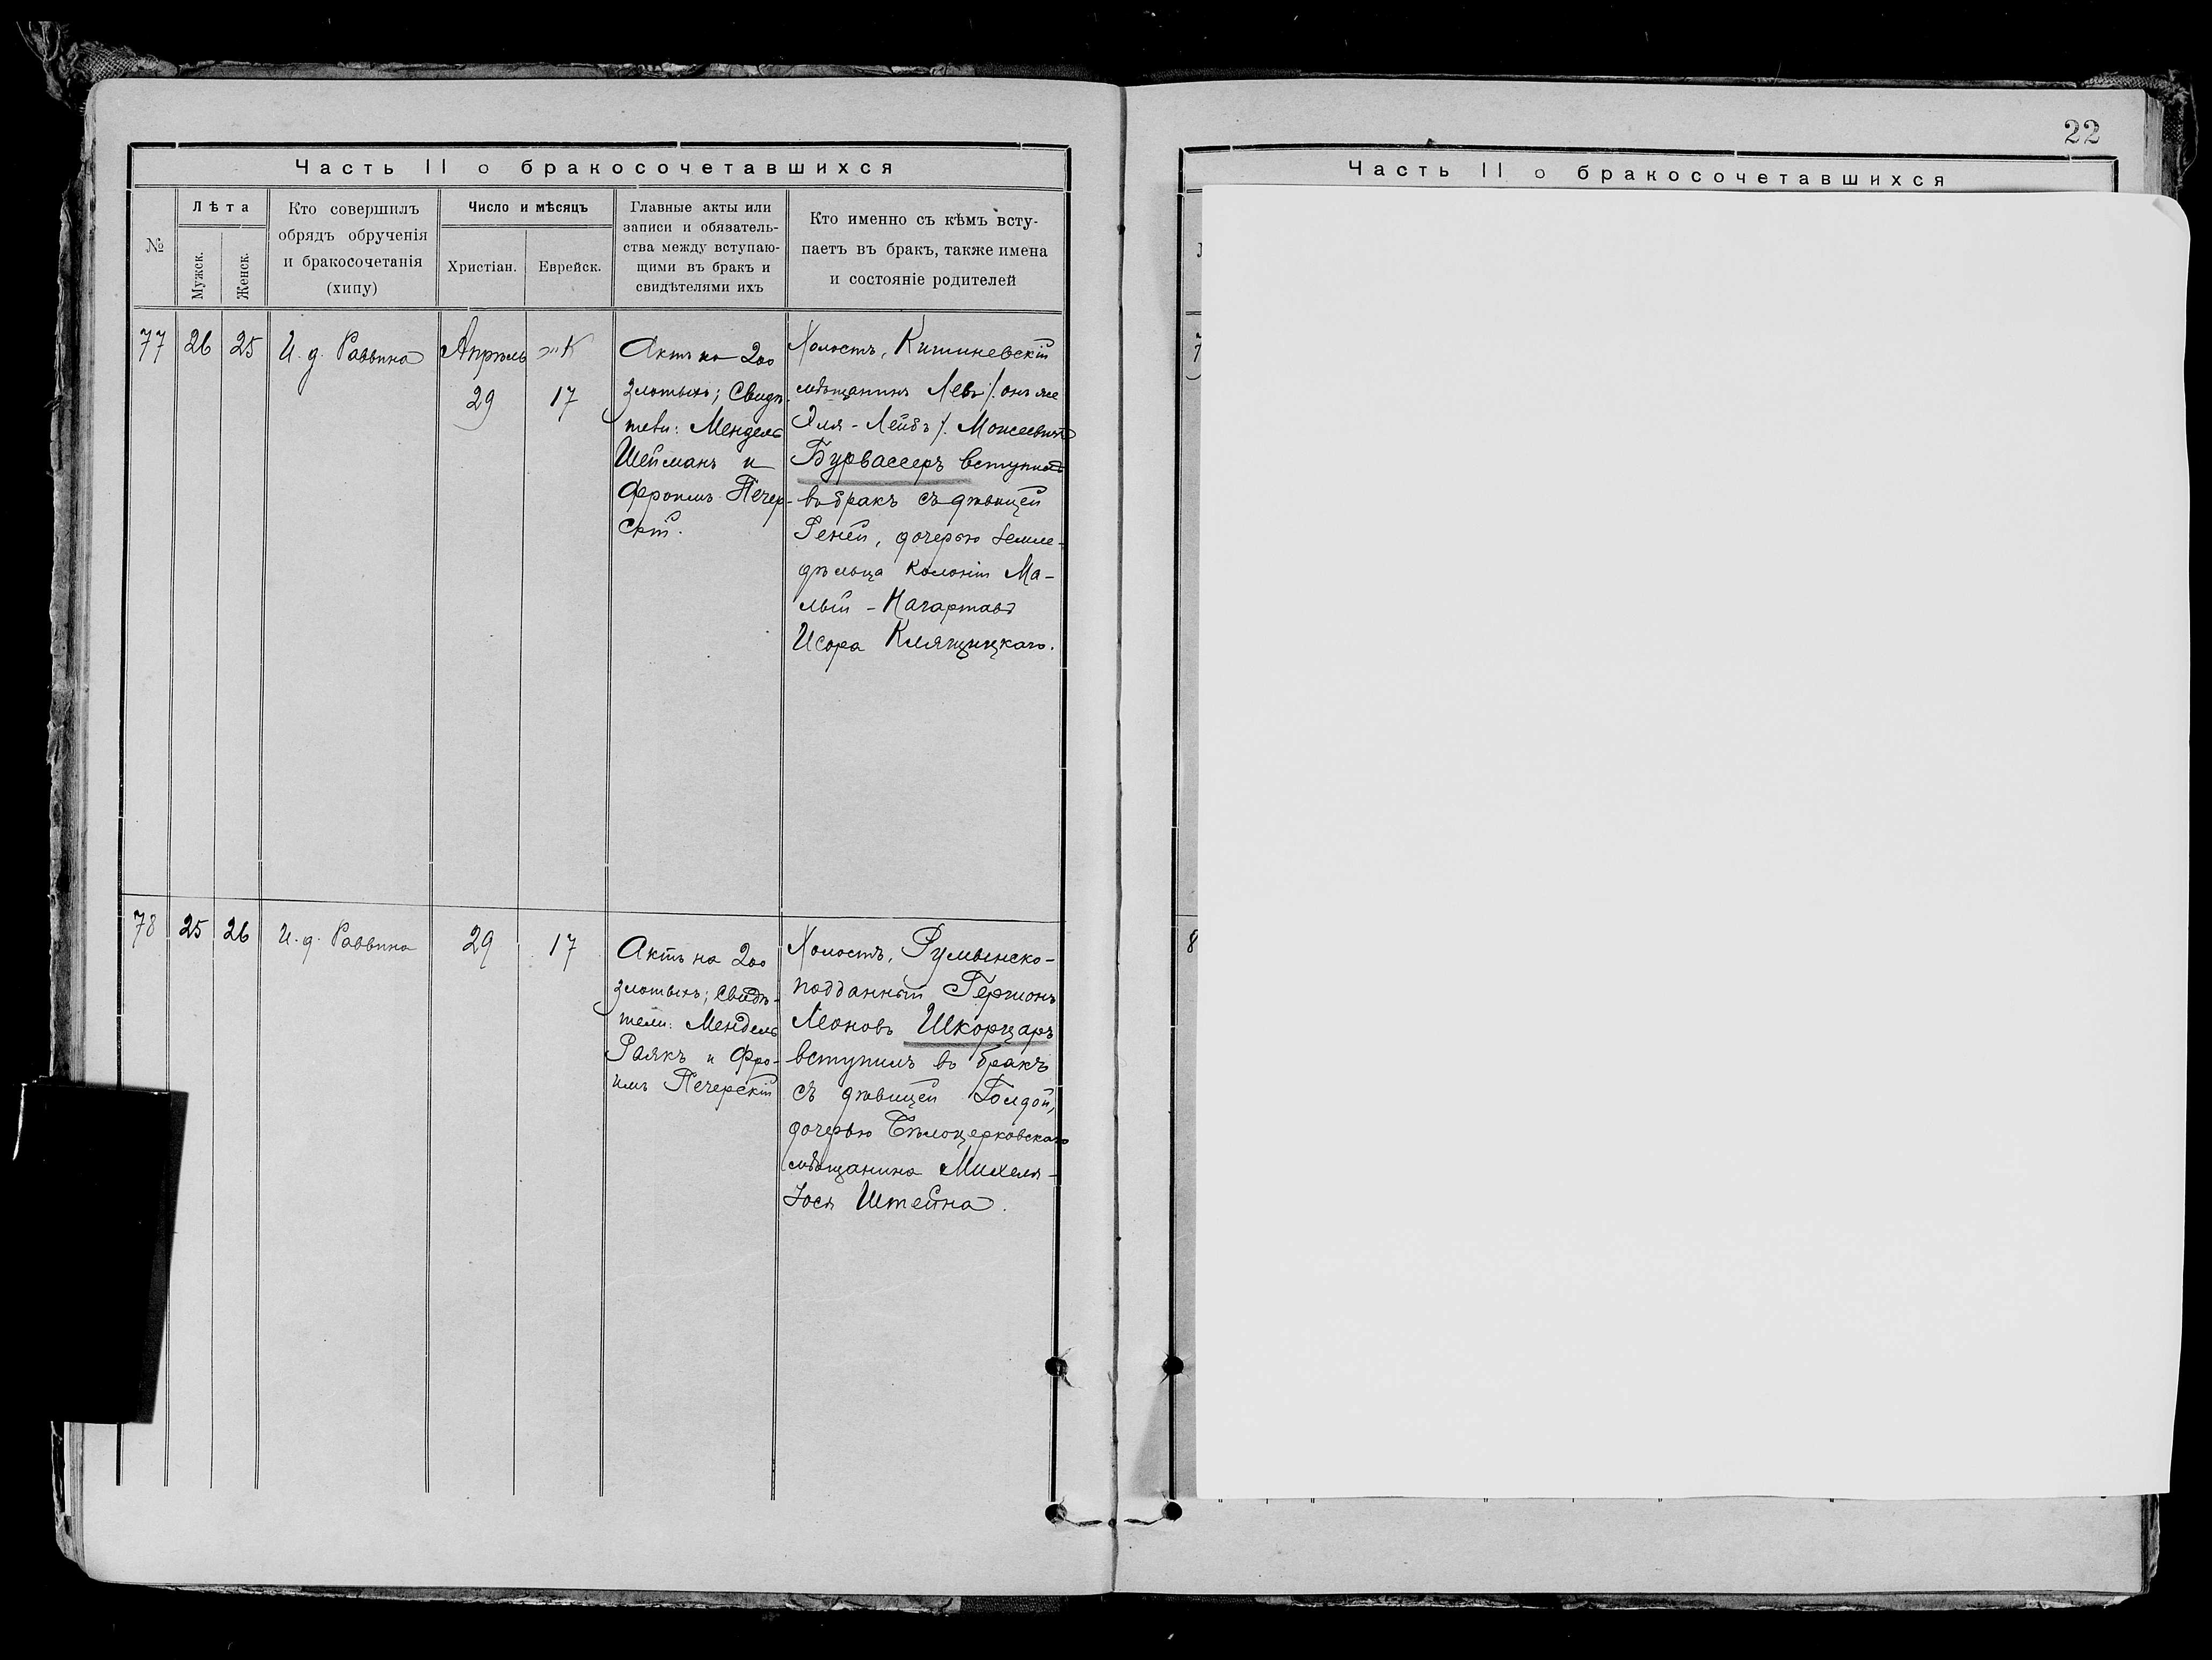 22
Часть II о бракосочетавшихся
Часть II о бракосочетавшихся
№
Лѣта
Мужск.
Женск.
Кто совершилъ
обрядъ обрученія
и бракосочетанія
(хипу)
Число и мѣсяцъ
Христіан.
Еврейск.
Главные акты или
записи и обязатель-
ства между вступаю-
щими въ бракъ и
свидѣтелями ихъ
Кто именно съ кѣмъ всту-
паетъ въ бракъ, также имена
и состояніе родителей
77
26
25
И. д. Раввина
Апрѣль
29
17
Актъ на 200
злотыхъ; Свидѣ-
тели: Мендель
Шейманъ и
Фроимъ Печер-
скій.
Холостъ, Кишиневскій
мѣщанинъ Левъ /. онъ же
Эля-Лейбъ /. Моисеевичъ
Бурвассеръ вступилъ
въ бракъ съ дѣвицей
Реней, дочерью земле-
дѣльца колоніи Ма-
лый-Нагартавъ
Исора Клящицкаго.
78
25
26
И. д. Раввина
29
17
Актъ на 200
злотыхъ; Свидѣ-
тели: Мендель
Раякъ и Фро-
имъ Печерскій
Холостъ, Румынско-
подданный Гершонъ
Леоновъ Шкорцаръ
вступилъ въ бракъ
съ дѣвицей Голдой,
дочерью Бѣлоцерковскаго
мѣщанина Михеля-
Іося Штейна.
8